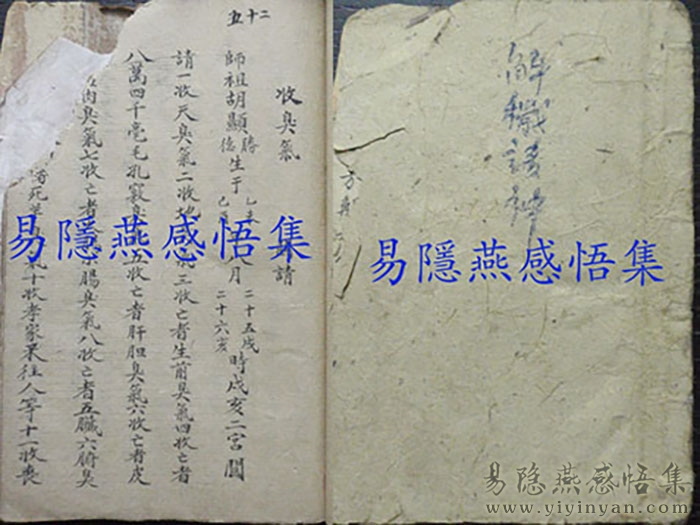 二十五
收臭氣
師祖胡顯勝德生于乙未己月二十五戌二十六亥時戌亥二宮聞
請一收天臭氣二收地三收亡者生前臭氣四收亡者
八萬四千毫毛孔竅臭五收亡者肝胆臭氣六收亡者皮
肉臭氣七收亡者腸臭氣八收亡者五臟六腑臭
死氣十收孝家來往人等十一收喪
請
解穢諸神
易隱燕感悟集
易隱燕感悟集
易隱燕感悟集
www.yiyinyan.com